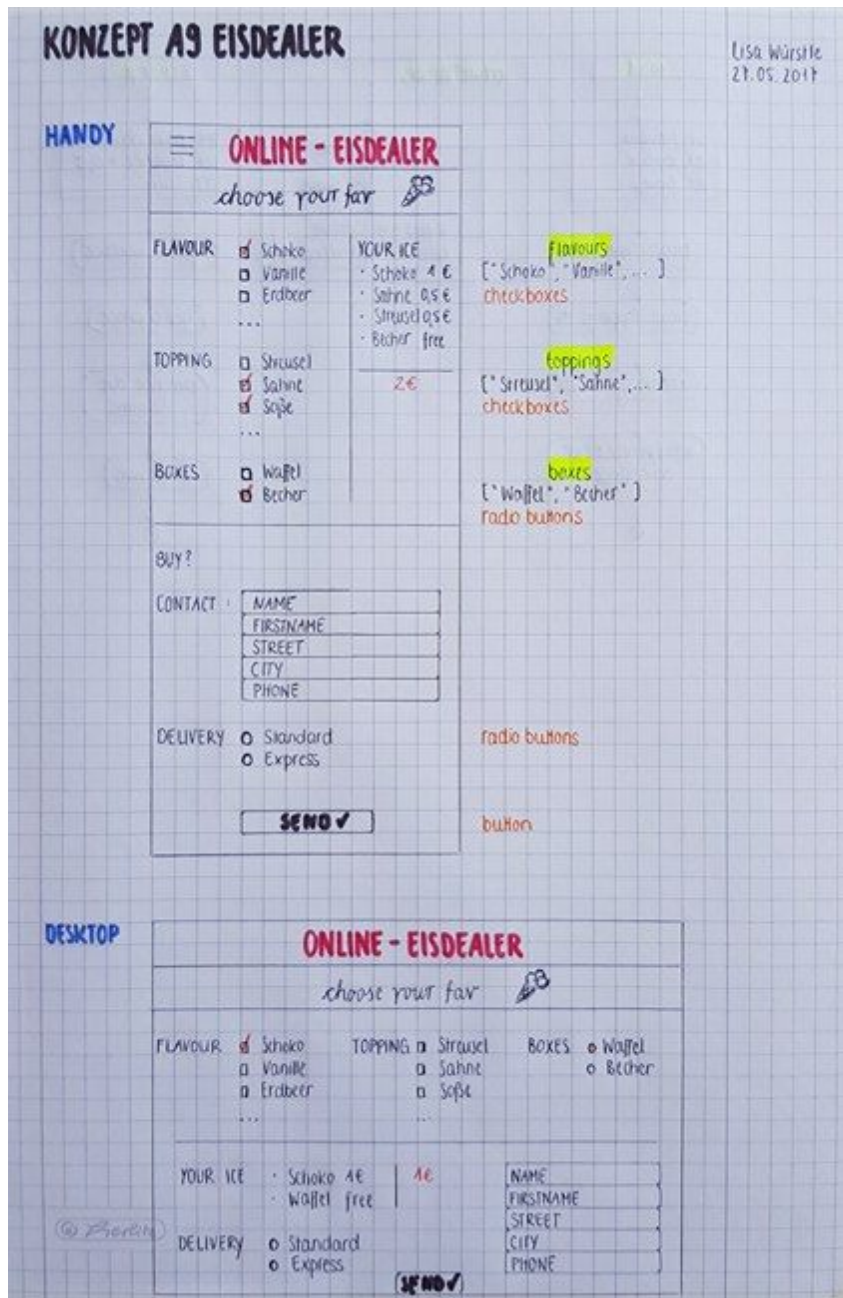 KONZEPT A9 EISDEALER
Lisa Würstle
27.05.2017
HANDY
ONLINE - EISDEALER
choose your far
FLAVOUR
Schoko
Vanille
Erdbeer
...
YOUR ICE
· Schoko 1 €
· Sahne 0,5 €
· Streusel 0,5 €
· Becher free
2€
flavours
["Schoko", "Vanille", ... ]
checkboxes
TOPPING
Streusel
Sahne
Soße
...
toppings
["Streusel", "Sahne", ... ]
checkboxes
BOXES
Waffel
Becher
boxes
["Waffel", "Becher" ]
radio buttons
BUY?
CONTACT :
NAME
FIRSTNAME
STREET
CITY
PHONE
DELIVERY
Standard
Express
radio buttons
SEND ✓
button
DESKTOP
ONLINE - EISDEALER
choose your far
FLAVOUR
Schoko
Vanille
Erdbeer
...
TOPPING
Streusel
Sahne
Soße
...
BOXES
Waffel
Becher
YOUR ICE
· Schoko 1€
· Waffel free
1€
NAME
FIRSTNAME
STREET
CITY
PHONE
DELIVERY
Standard
Express
SEND ✓